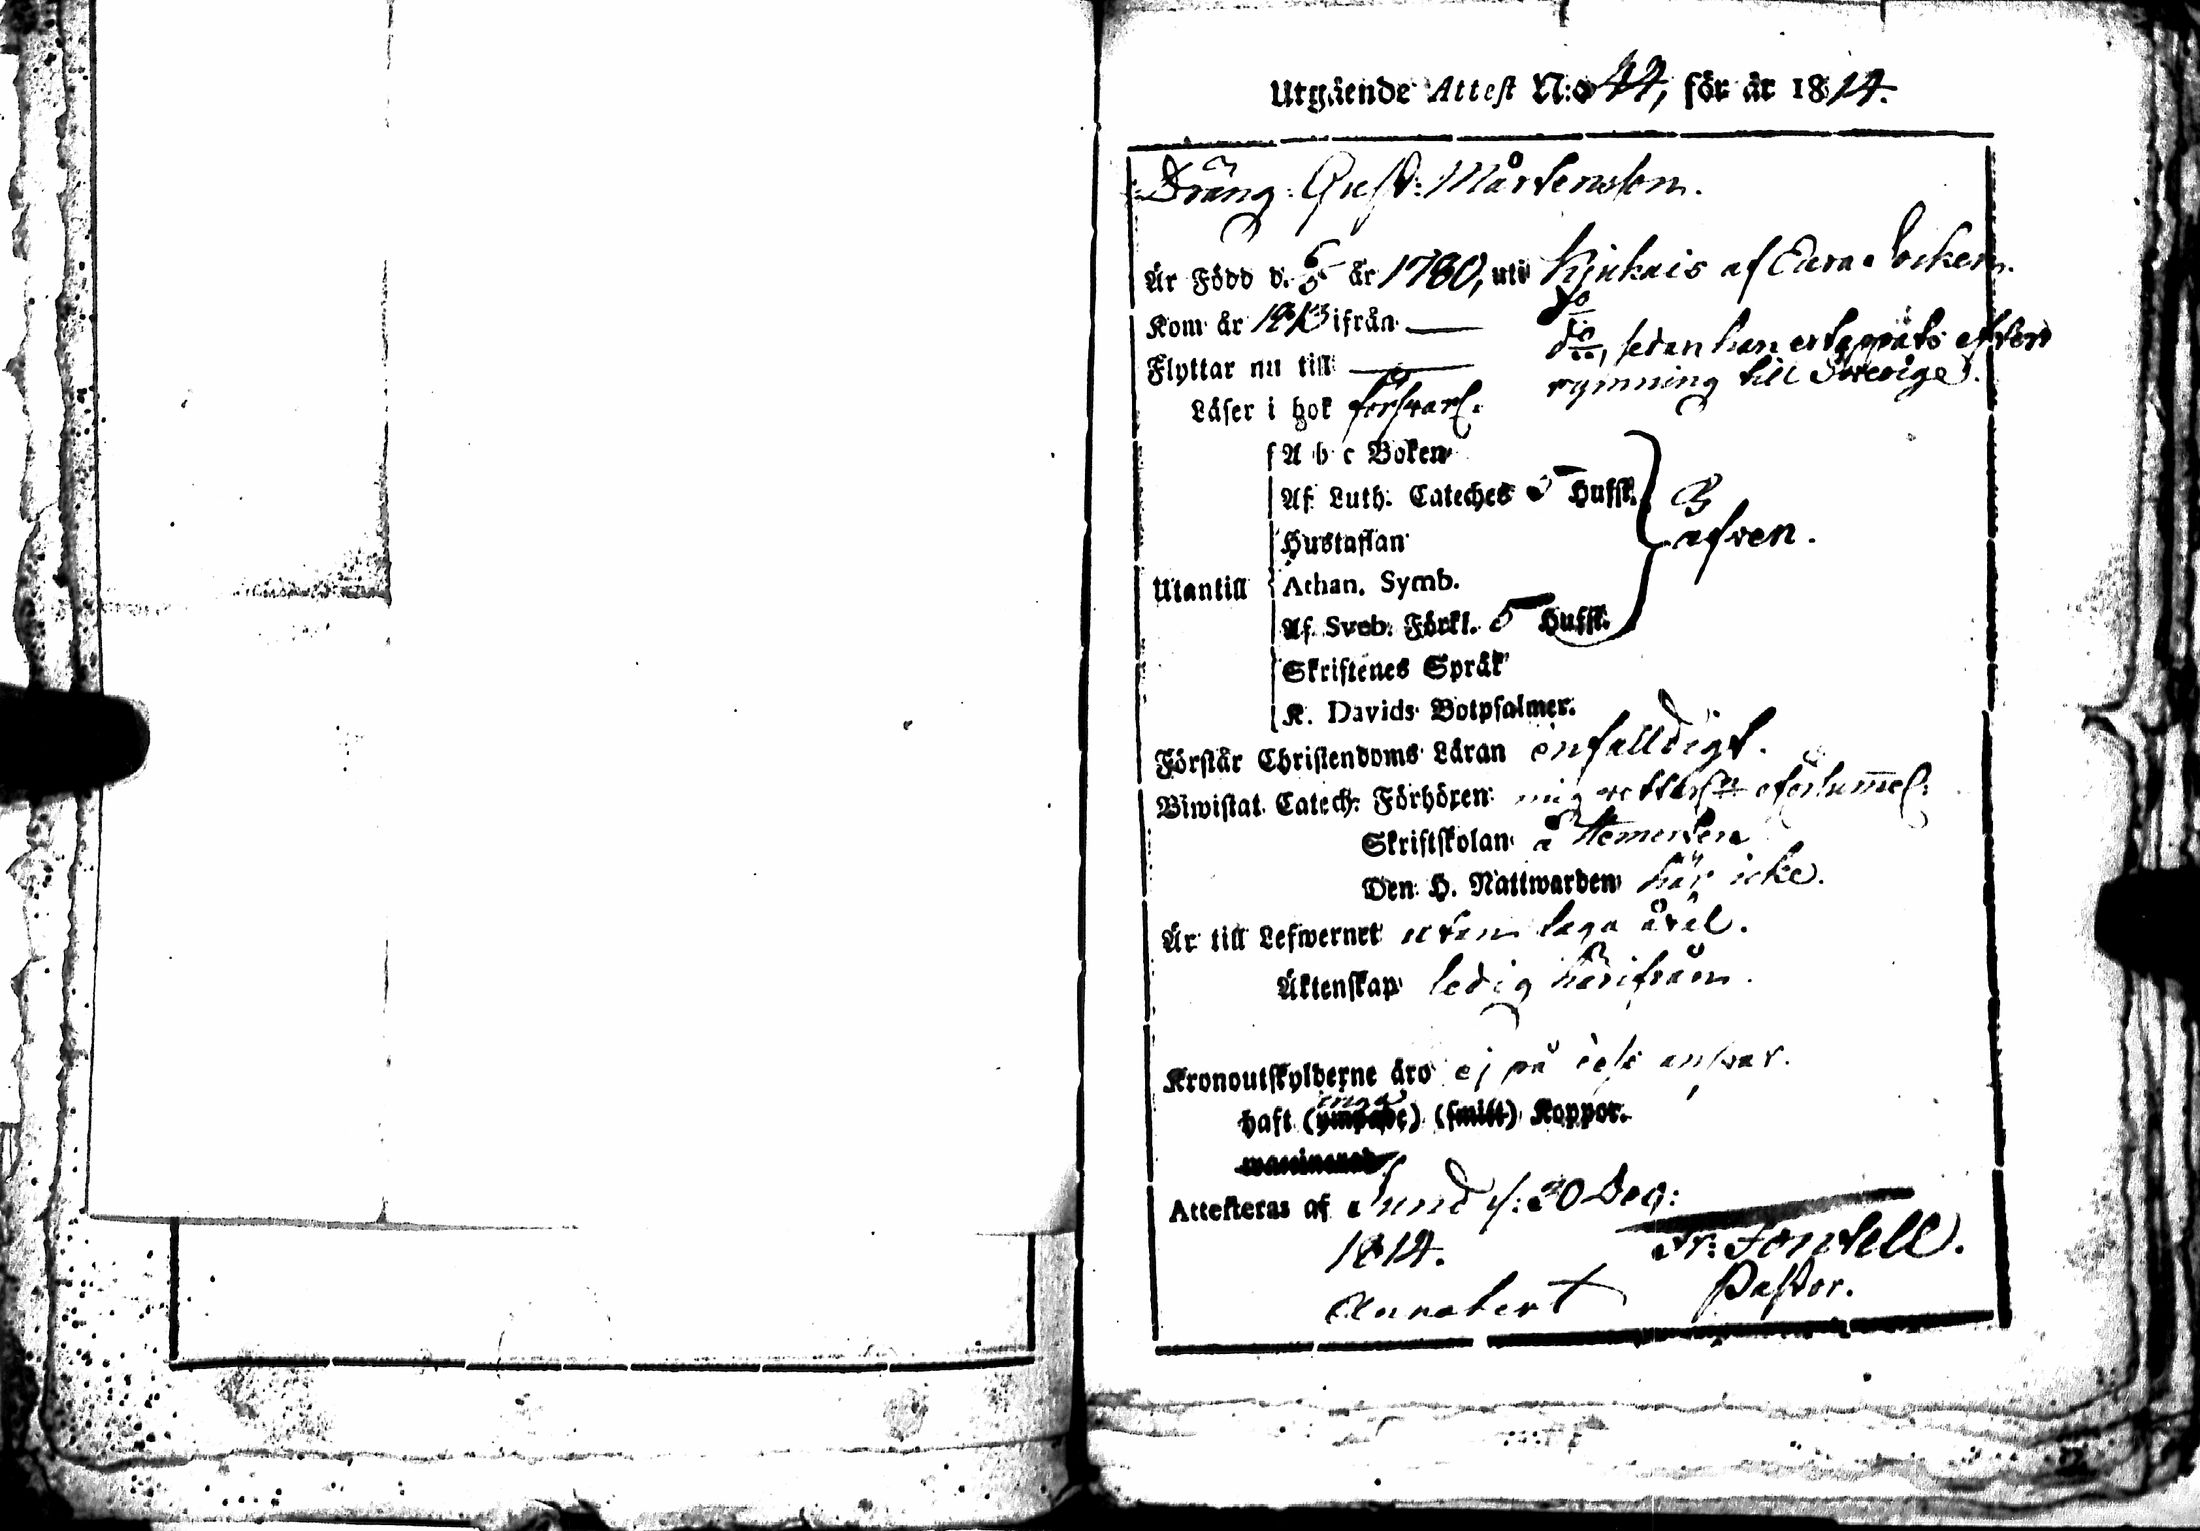 Utgående Attest N:o 44, för år 1814.
Dräng Gust: Mårtensson.
Är Född d. 6/5 år 1780, uti Kjukais af Eura Socken.
Kom år 1813 ifrån — do
Flyttar nu till — do, sedan han ertappats efter
rymning till Swerige.
Läser i bok försvarl.
Utantill
A b c Boken
Af Luth. Cateches 5 Hufst.
Hustaflan
Athan. Symb.
Af Sveb. Förkl. 5 Hufst.
äfven.
Skriftenes Språk
K. Davids Botpsalmer.
Förstår Christendoms Läran enfalldigt.
Biwistat Catech. Förhören
Skriftskolan
Den H. Nattwarden här icke.
Är till Lefwernet utan laga åtal.
Äktenskap ledig härifrån.
Kronoutskylderne äro ej på ansvar.
haft (ympade) (smitt) Koppor.
waccinerad
Attesteras af Sund d: 30 Dec:
1814.
Fr: Fontell.
Pastor.